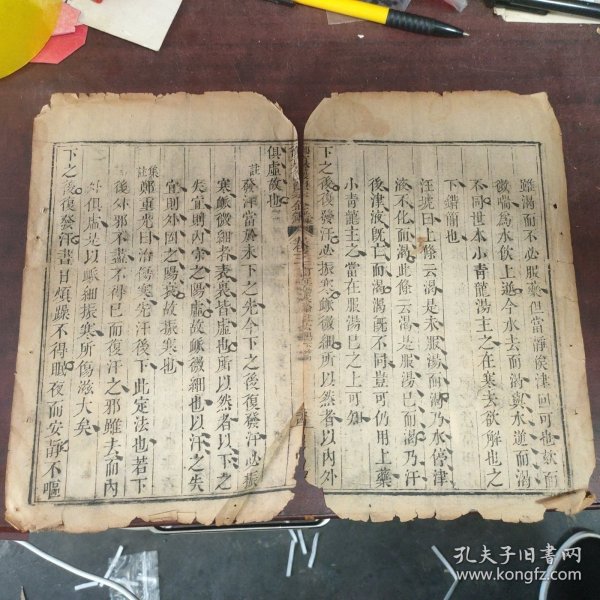 雖渴而不必服藥但當靜俟津回可也欬而
微喘爲水飲上逆今水去而渴與水逆而渴
不同世本小青龍湯主之在寒去欲解也之
下錯簡也
汪琥曰上條云渴是未服湯而渴乃水停津
液不化而渴此條云渴是服湯已而渴乃汗
後津液既亡而渴渴既不同豈可仍用上藥
小青龍湯主之當在服湯已之上可知
下之後復發汗必振寒脈微細所以然者以內外
俱虛故也
註發汗當於未下之先今下之後復發汗必振
寒脈微細者表裏皆虛也所以然者以下之
失宜則內守之陽虛故脈微細也以汗之失
宜則外固之陽衰故振寒也
集註鄭重光曰治傷寒先汗後下此定法也若下
後外邪不盡不得已而復汗之邪雖去而內
外俱虛是以脈細振寒所傷滋大矣
下之後復發汗晝日煩躁不得眠夜而安靜不嘔
孔夫子旧书网
www.kongfz.com